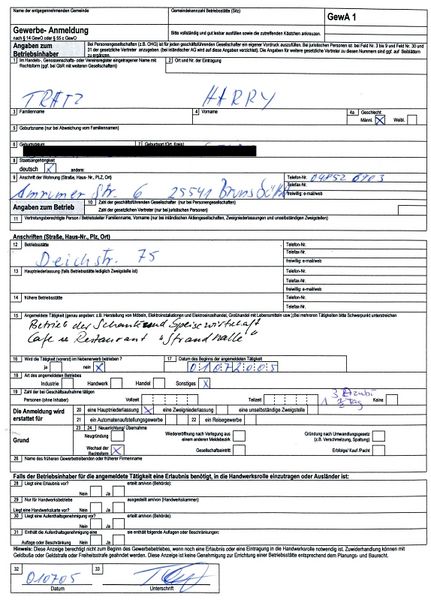 Name der entgegennehmenden Gemeinde
Gemeindekennzahl Betriebsstätte (Sitz)
GewA 1
Gewerbe- Anmeldung
nach § 14 GewO oder § 55 c GewO
Bitte vollständig und gut lesbar ausfüllen sowie die zutreffenden Kästchen ankreuzen.
Angaben zum Betriebsinhaber
Bei Personengesellschaften (z.B. OHG) ist für jeden geschäftsführenden Gesellschafter ein eigener Vordruck auszufüllen. Bei juristischen Personen ist bei Feld Nr. 3 bis 9 und Feld Nr. 30 und
31 der gesetzliche Vertreter anzugeben
1 Im Handels-, Genossenschafts- oder Vereinsregister eingetragener Name mit
Rechtsform (ggf. bei GbR mit weiteren Gesellschaftern)
2 Ort und Nr. der Eintragung
TRATZ HARRY
3 Familienname
4 Vorname
4a Geschlecht
Männl. X Weibl.
5 Geburtsname (nur bei Abweichung vom Familiennamen)
6 Geburtsdatum
7 Geburtsort
8 Staatsangehörigkeit
deutsch X
9 Anschrift der Wohnung (Straße, Haus-Nr., PLZ, Ort)
Telefon-Nr.
Telefax-Nr.
freiwillig: e-mail/web
Str. 6 25541
Angaben zum Betrieb
10 Zahl der geschäftsführenden Gesellschafter (nur bei Personengesellschaften)
Zahl der gesetzlichen Vertreter (nur bei jur. Personen)
11 Vertretungsberechtigte Person / Betriebsleiter
Anschriften (Straße, Haus-Nr., Plz, Ort)
12 Betriebsstätte
Telefon-Nr.
Telefax-Nr.
freiwillig: e-mail/web
Deichstr. 75
13 Hauptniederlassung (falls Betriebsstätte lediglich Zweigstelle ist)
Telefon-Nr.
Telefax-Nr.
freiwillig: e-mail/web
14 frühere Betriebsstätte
Telefon-Nr.
Telefax-Nr.
freiwillig: e-mail/web
15 Angemeldete Tätigkeit
Betrieb der Schank und Speisewirtschaft
Cafe u Restaurant "Strandhalle"
16 Wird die Tätigkeit (vorerst) im Nebenerwerb betrieben ?
17 Datum des Beginns der angemeldeten Tätigkeit
ja nein X
01072005
18 Art des angemeldeten Betriebes
Industrie Handwerk Handel Sonstiges X
19 Zahl der bei Geschäftsaufnahme tätigen
Personen (ohne Inhaber) Vollzeit Teilzeit Keine
Die Anmeldung wird erstattet für
20 eine Hauptniederlassung X eine Zweigniederlassung eine unselbständige Zweigstelle
21 ein Automatenaufstellungsgewerbe 22 ein Reisegewerbe
Grund
23 24 Neuerrichtung/ Übernahme
Neugründung
Wiedereröffnung nach Verlegung von
einem anderen Meldebezirk
Gründung nach Umwandlungsgesetz
(z.B. Verschmelzung, Spaltung)
Wechsel der
Rechtsform
Gesellschaftseintritt
Erbfolge/ Kauf/ Pacht
26 Name des früheren Gewerbetreibenden oder früherer Firmenname
Falls der Betriebsinhaber für die angemeldete Tätigkeit eine Erlaubnis benötigt, in die Handwerksrolle einzutragen oder Ausländer ist:
28 Liegt eine Erlaubnis vor?
Nein Ja
erteilt am/von (Behörde)
29 Nur für Handwerksbetriebe
Liegt eine Handwerkskarte vor? Nein Ja
ausgestellt am/von (Handwerkskammer)
30 Liegt eine Aufenthaltsgenehmigung vor?
Nein Ja
erteilt am/von (Behörde)
31 Enthält die Aufenthaltsgenehmigung eine
Auflage oder Beschränkung Nein Ja
sie enthält folgende Auflagen oder Beschränkungen:
Hinweis: Diese Anzeige berechtigt nicht zum Beginn des Gewerbebetriebes, wenn noch eine Erlaubnis oder eine Eintragung in die Handwerksrolle notwendig ist. Zuwiderhandlungen können mit
Geldbuße oder Geldstrafe oder Freiheitsstrafe geahndet werden. Diese Anzeige ist keine Genehmigung zur Errichtung einer Betriebsstätte entsprechend dem Planungs- und Baurecht.
32 010705
Datum
33
Unterschrift